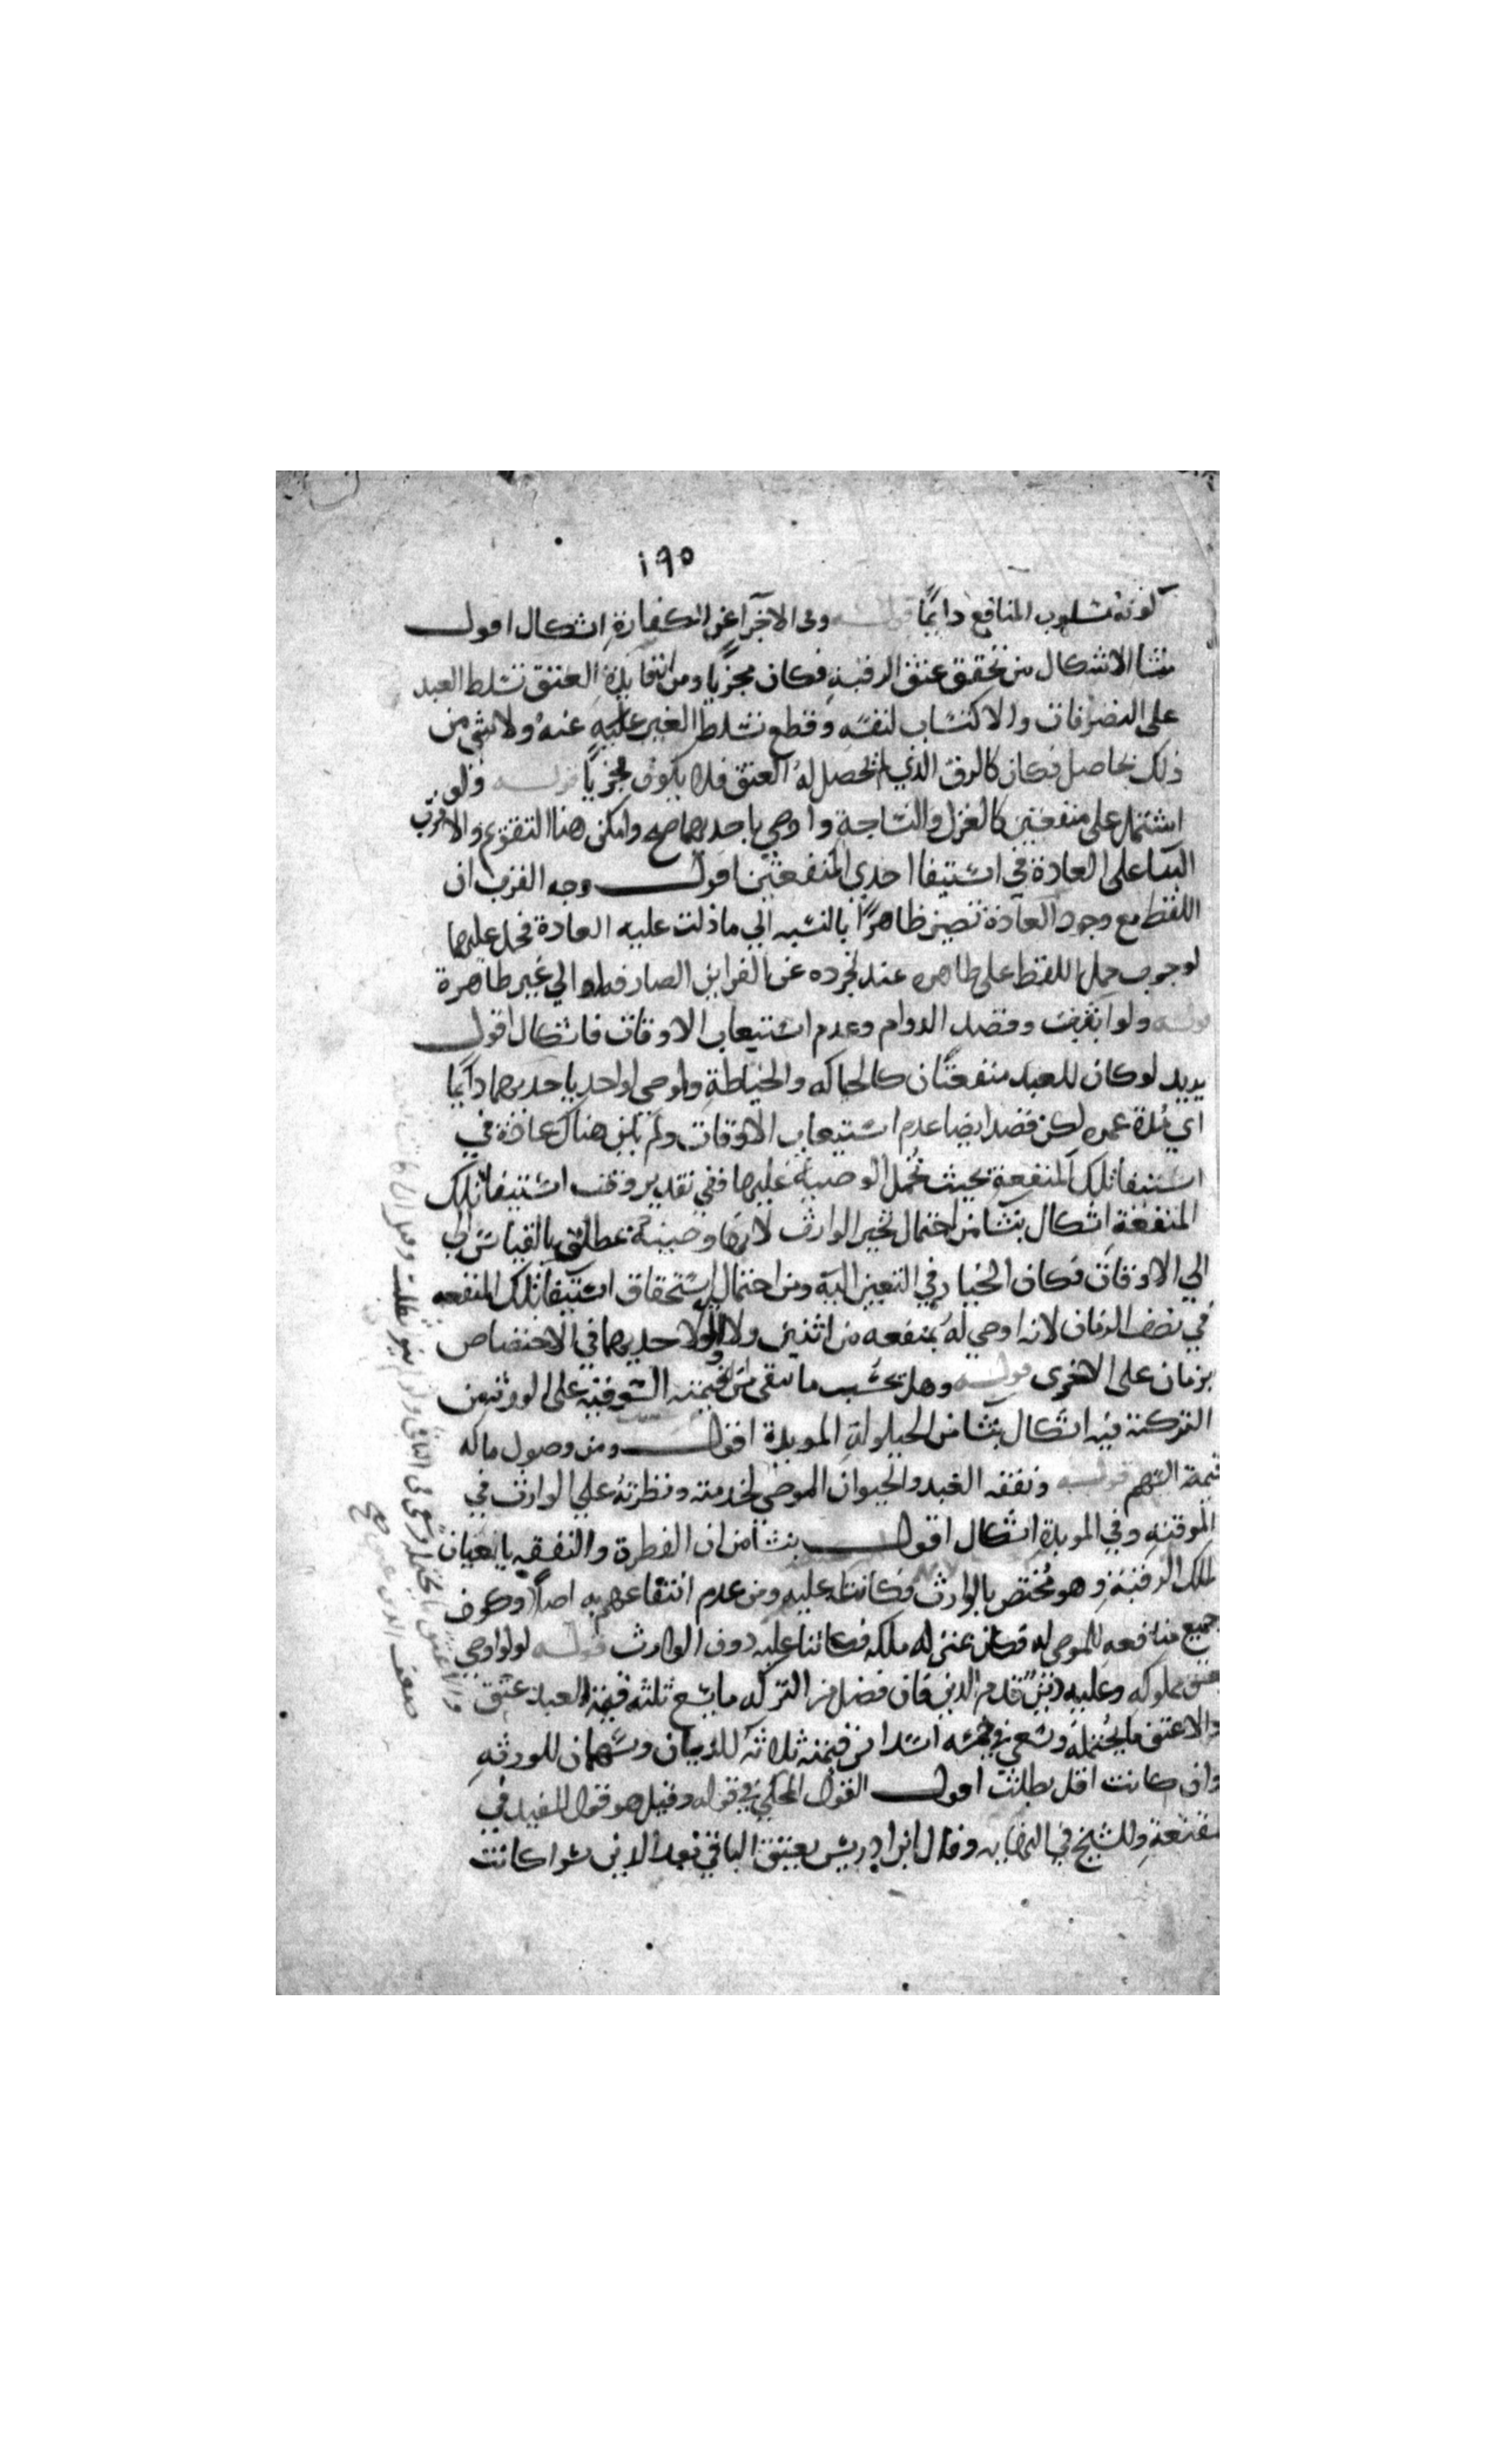 ١٩٥
كونه مسلوب المنافع دايمًا قوله وفى الاجزآ عن الكفارة اشكال اقول
ينشا الاشكال من تحقق عتق الرقبة فكان مجزيا ومن ان فايدة العتق تسلط العبد
على التصرفات والاكتساب لنفسه وقطع تسلط الغير عليه عنه ولا شي من
ذلك بحاصل فكان كالرق الذي لم يحصل له العتق فلا يكون مجزيًا قوله ولو
اشتمل على منفعتين كالغزل والنساجة واوصى باحديهما صح وامكن هنا التقويم والاقرب
البنا على العادة في استيفا احدي المنفعتين اقول وجه القرب ان
اللفظ مع وجود العادة يصير ظاهرًا بالنسبه الي ما دلت عليه العادة فحمل عليها
لوجوب حمل اللفظ على ظاهره عند تجرده عن القراين الصارفه له الي غير ظاهرة
قوله ولو انتفت وقصد الدوام وعدم استيعاب الاوقات فاشكال اقول
يريد لو كان للعبد منفعتان كالحياكه والخياطة واوصى لواحد باحديهما دايما
اي مدة عمره لكن قصد ايضا عدم استيعاب الاوقات ولم يكن هناك عادة في
استيفا تلك المنفعة بحيث تحمل الوصية عليها ففي تقدير وقت استيفا تلك
المنفعة اشكال ينشا من احتمال تخير الوارث لانها وصية مطلق بالقياس الي
الي الاوقات فكان الخيار في التعيين اليه ومن احتمال استحقاق استيفا تلك المنفعه
في نصف الزمان لانه اوصي له بمنفعه من اثنين ولا اولويه لاحديهما في الاختصاص
بزمان على الاخرى قوله وهل يحتسب ما تبقى من قيمته السوقية على الورثة من
التركة فيه اشكال ينشا من الحيلولة الموبدة اقول ومن وصول ماله
قيمة اليهم قوله ونفقه العبد والحيوان الموصى بخدمته وفطرته علي الوارث في
الموقته وفي الموبدة اشكال اقول ينشا من ان الفطرة والنفقه يابعان
لملك الرقبة وهو مختص بالوارث فكانتا عليه ومن عدم انتفاعهم به اصلا وكون
جميع منافعه للموصى له فكان عتق له ملكه فكانتا عليه دون الوارث قوله لو اوصى
بعتق مملوكه وعليه دين قدم الدين فان فضل من التركه ما يسع ثلثه قيمة العبد عتق
والا عتق ما يحتمله وسعي في خمسه اسداس قيمته ثلاثة للديان وسهمان للورثه
وان كانت اقل بطلت اقول القول المحكي في قوله وقيل هو قول المفيد في
مقنعة والشيخ في النهايه وقال ابن ادريس يعتق الباقي بعد الدين سوا كانت